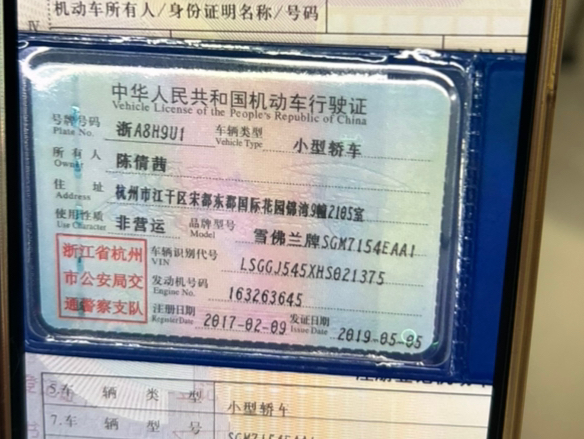 机动车所有人/身份证明名称/号码
中华人民共和国机动车行驶证
Vehicle License of the People's Republic of China
号牌号码 浙A8H9U1 车辆类型 小型轿车
Plate No. Vehicle Type
所有人 陈倩茜
Owner
住址 杭州市江干区宋都东郡国际花园锦湾9幢2105室
Address
使用性质 非营运 品牌型号 雪佛兰牌SGM7154EAA1
Use Character Model
浙江省杭州
市公安局交
通警察支队
车辆识别代号 LSGGJ545XHS021375
VIN
发动机号码 163263645
Engine No.
注册日期 2017-02-09 发证日期 2019-05-05
Register Date Issue Date
5.车辆类型 小型轿车
7.车辆型号